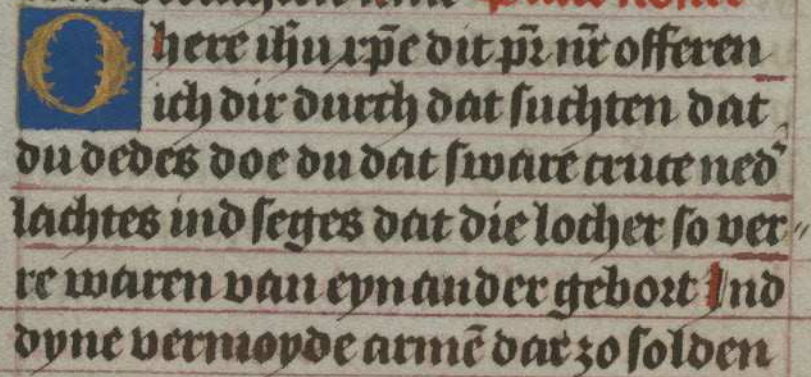 O here ihu xpe dit pr nr offeren
ich dir durch dat suchten dat
du dedes doe du dat sware cruce ned
lachtes ind seges dat die locher so ver〃
re waren van eynander gebort Ind
dyne vermoyde armē dar zo solden